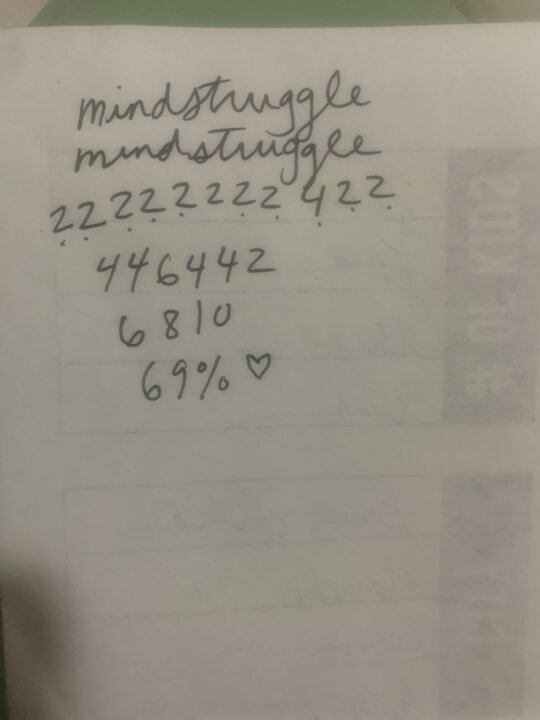 mindstruggle
mindstruggle
22 22 2 2 2 2 2 4 2 2
446442
6 8 10
69% ♡
# OF KIDS
CITY